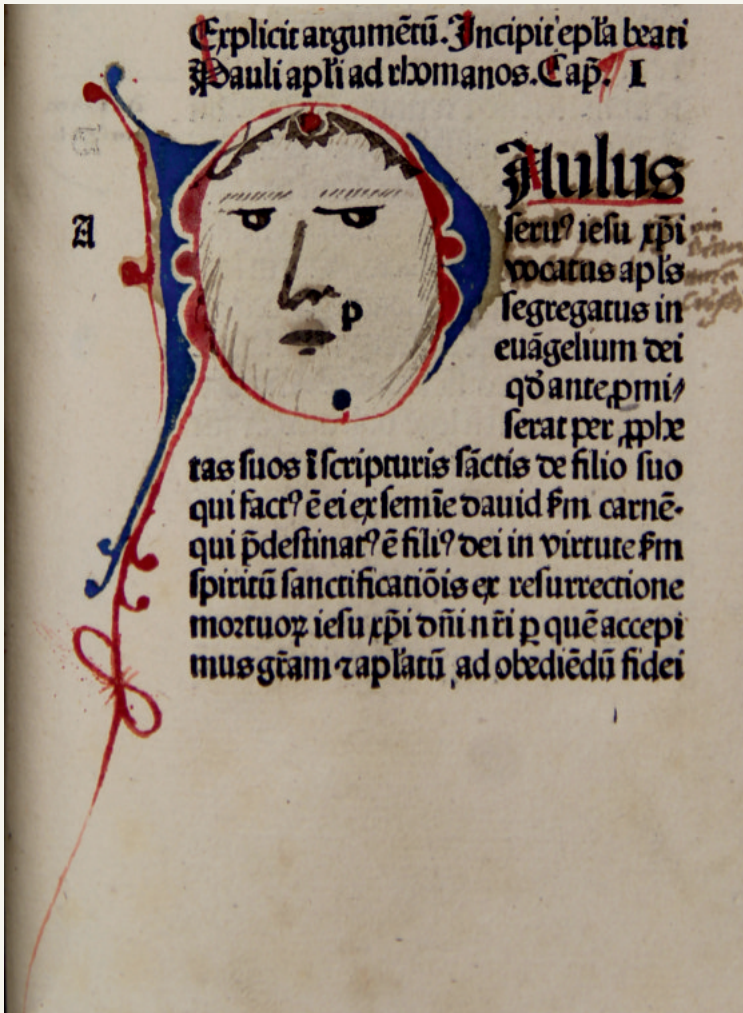 Explicit argumẽtũ. Incipit ep̃la beati
Pauli apl̃i ad rhomanos. Cap̃. I
Aulus
A
seruꝰ iesu xp̃i
vocatus apl̃s
segregatus in
p
euãgelium dei
qð ante ꝓmi⸗
serat per ꝓphe
tas suos ĩ scripturis sãctis de filio suo
qui factꝰ ẽ ei ex semĩe dauid ẜm carnẽ.
qui p̃destinatꝰ ẽ filiꝰ dei in virtute ẜm
spiritũ sanctificatiõis ex resurrectione
mortuoꝝ iesu xp̃i dñi nr̃i ꝑ quẽ accepi
mus gr̃am ⁊ apl̃atũ ad obediẽdũ fidei